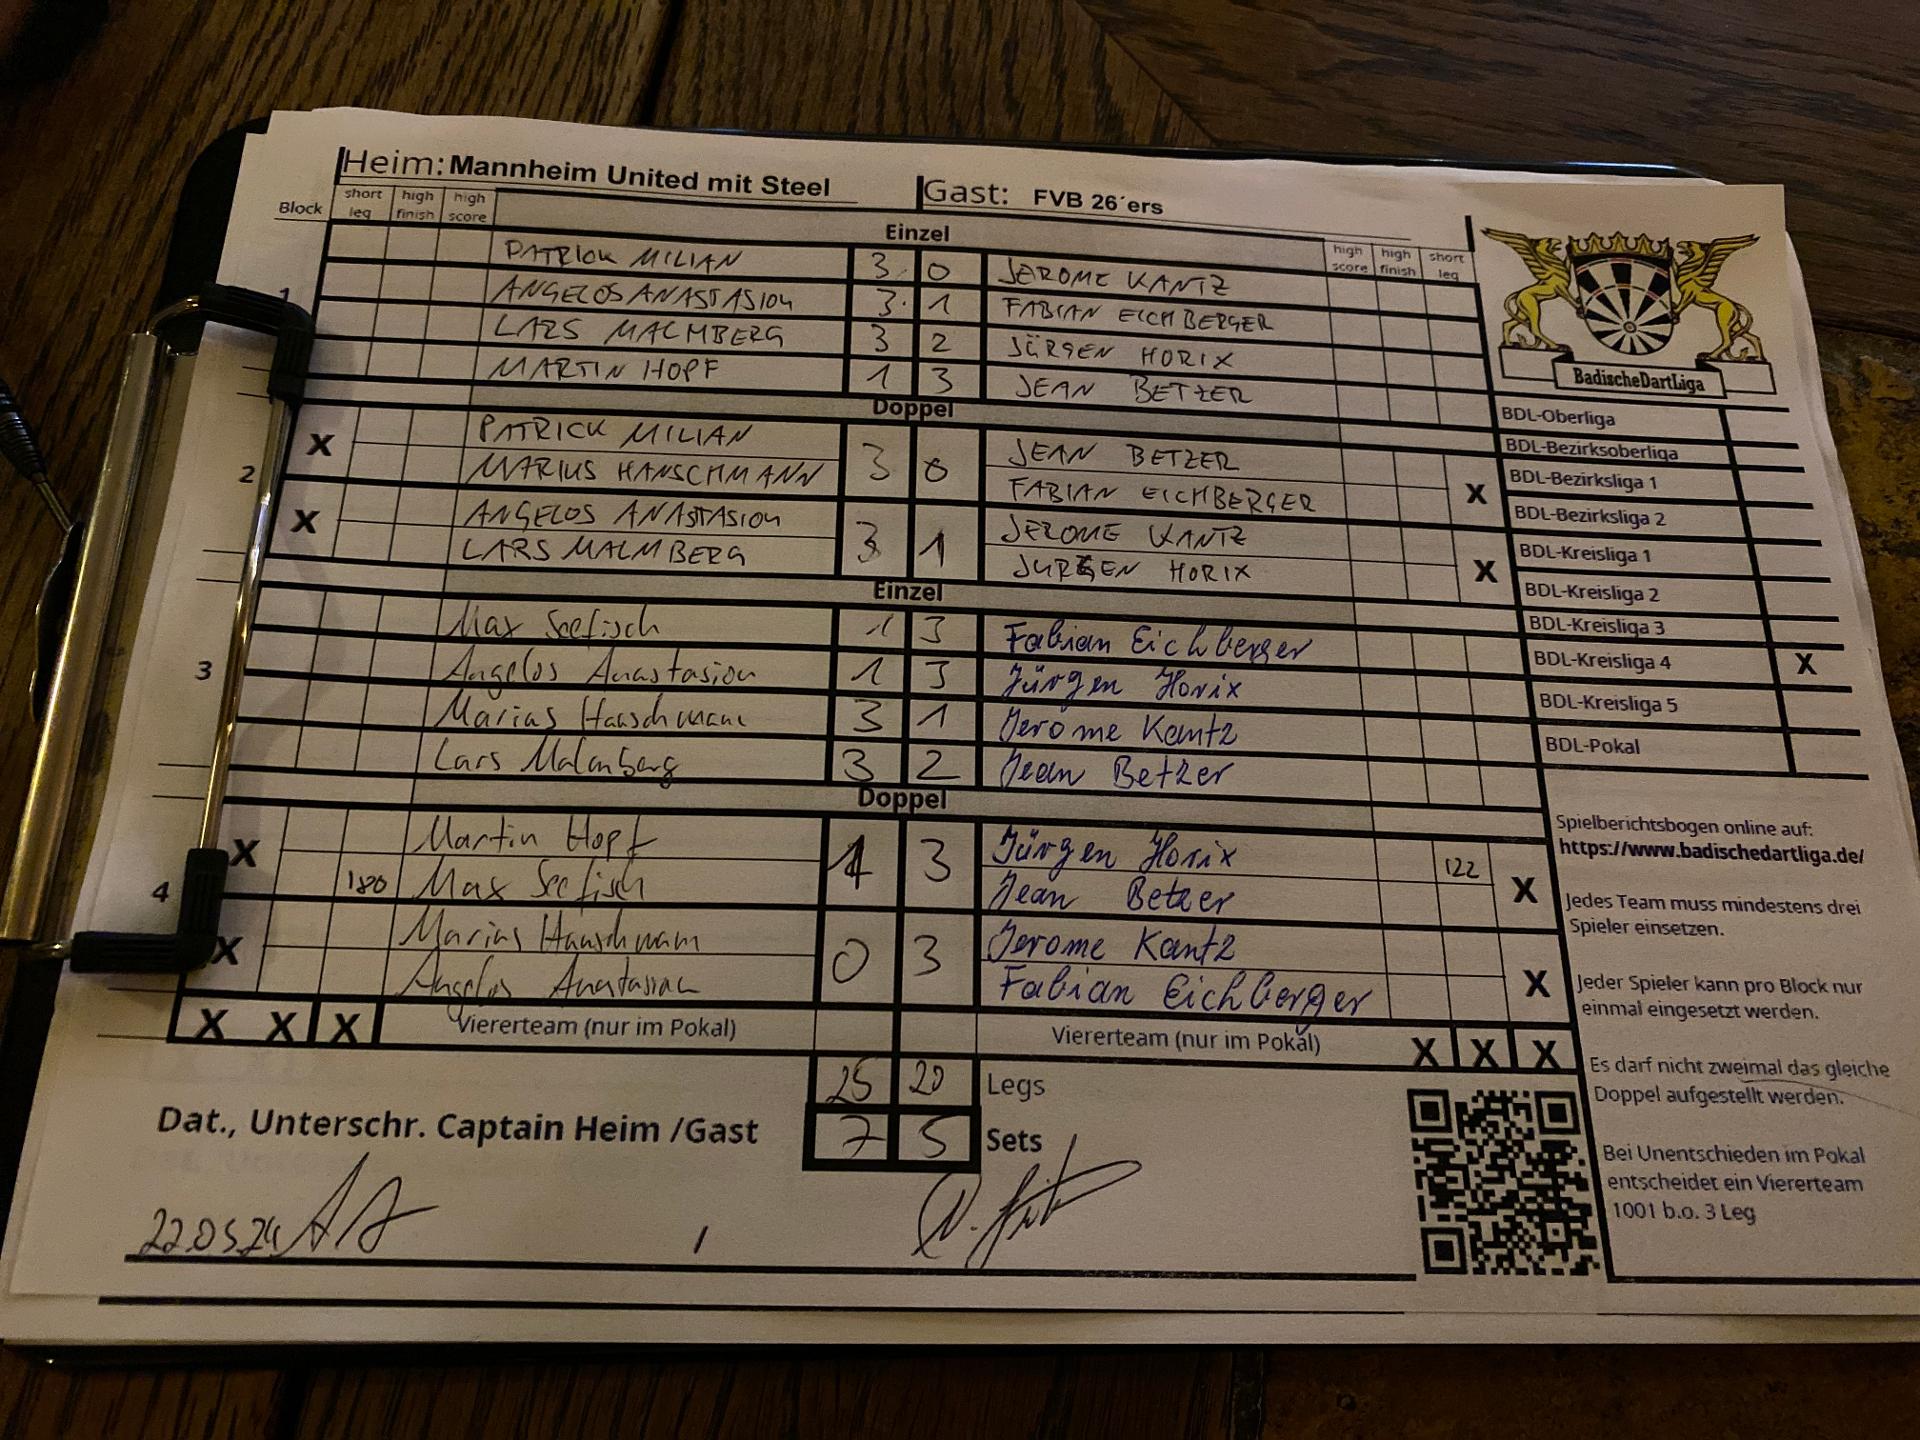 Heim: Mannheim United mit Steel Gast: FVB 26´ers
Block short leg high finish high score Einzel high score high finish short leg
1 PATRICK MILIAN 3 0 JEROME KANTZ
ANGELOS ANASTASIOU 3 1 FABIAN EICHBERGER
LARS MALMBERG 3 2 JÜRGEN HORIX
MARTIN HOPF 1 3 JEAN BETZER
Doppel
2 X PATRICK MILIAN 3 0 JEAN BETZER
MARIUS HANSCHMANN FABIAN EICHBERGER X
X ANGELOS ANASTASIOU 3 1 JEROME KANTZ
LARS MALMBERG JURGEN HORIX X
Einzel
Max Seefisch 1 3 Fabian Eichberger
3 Angelos Anastasiou 1 3 Jürgen Horix
Marius Hanschmann 3 1 Jerome Kantz
Lars Malmberg 3 2 Jean Betzer
Doppel
4 X Martin Hopf 1 3 Jürgen Horix 122
180 Max Seefisch Jean Betzer X
X Marius Hanschmann 0 3 Jerome Kantz
Angelos Anastasiou Fabian Eichberger X
X X X Viererteam (nur im Pokal) Viererteam (nur im Pokal) X X X
25 20 Legs
7 5 Sets
Dat., Unterschr. Captain Heim /Gast
22.05.24 /
BadischeDartLiga
BDL-Oberliga
BDL-Bezirksoberliga
BDL-Bezirksliga 1
BDL-Bezirksliga 2
BDL-Kreisliga 1
BDL-Kreisliga 2
BDL-Kreisliga 3
BDL-Kreisliga 4 X
BDL-Kreisliga 5
BDL-Pokal
Spielberichtsbogen online auf:
https://www.badischedartliga.de/
Jedes Team muss mindestens drei
Spieler einsetzen.
Jeder Spieler kann pro Block nur
einmal eingesetzt werden.
Es darf nicht zweimal das gleiche
Doppel aufgestellt werden.
Bei Unentschieden im Pokal
entscheidet ein Viererteam
1001 b.o. 3 Leg